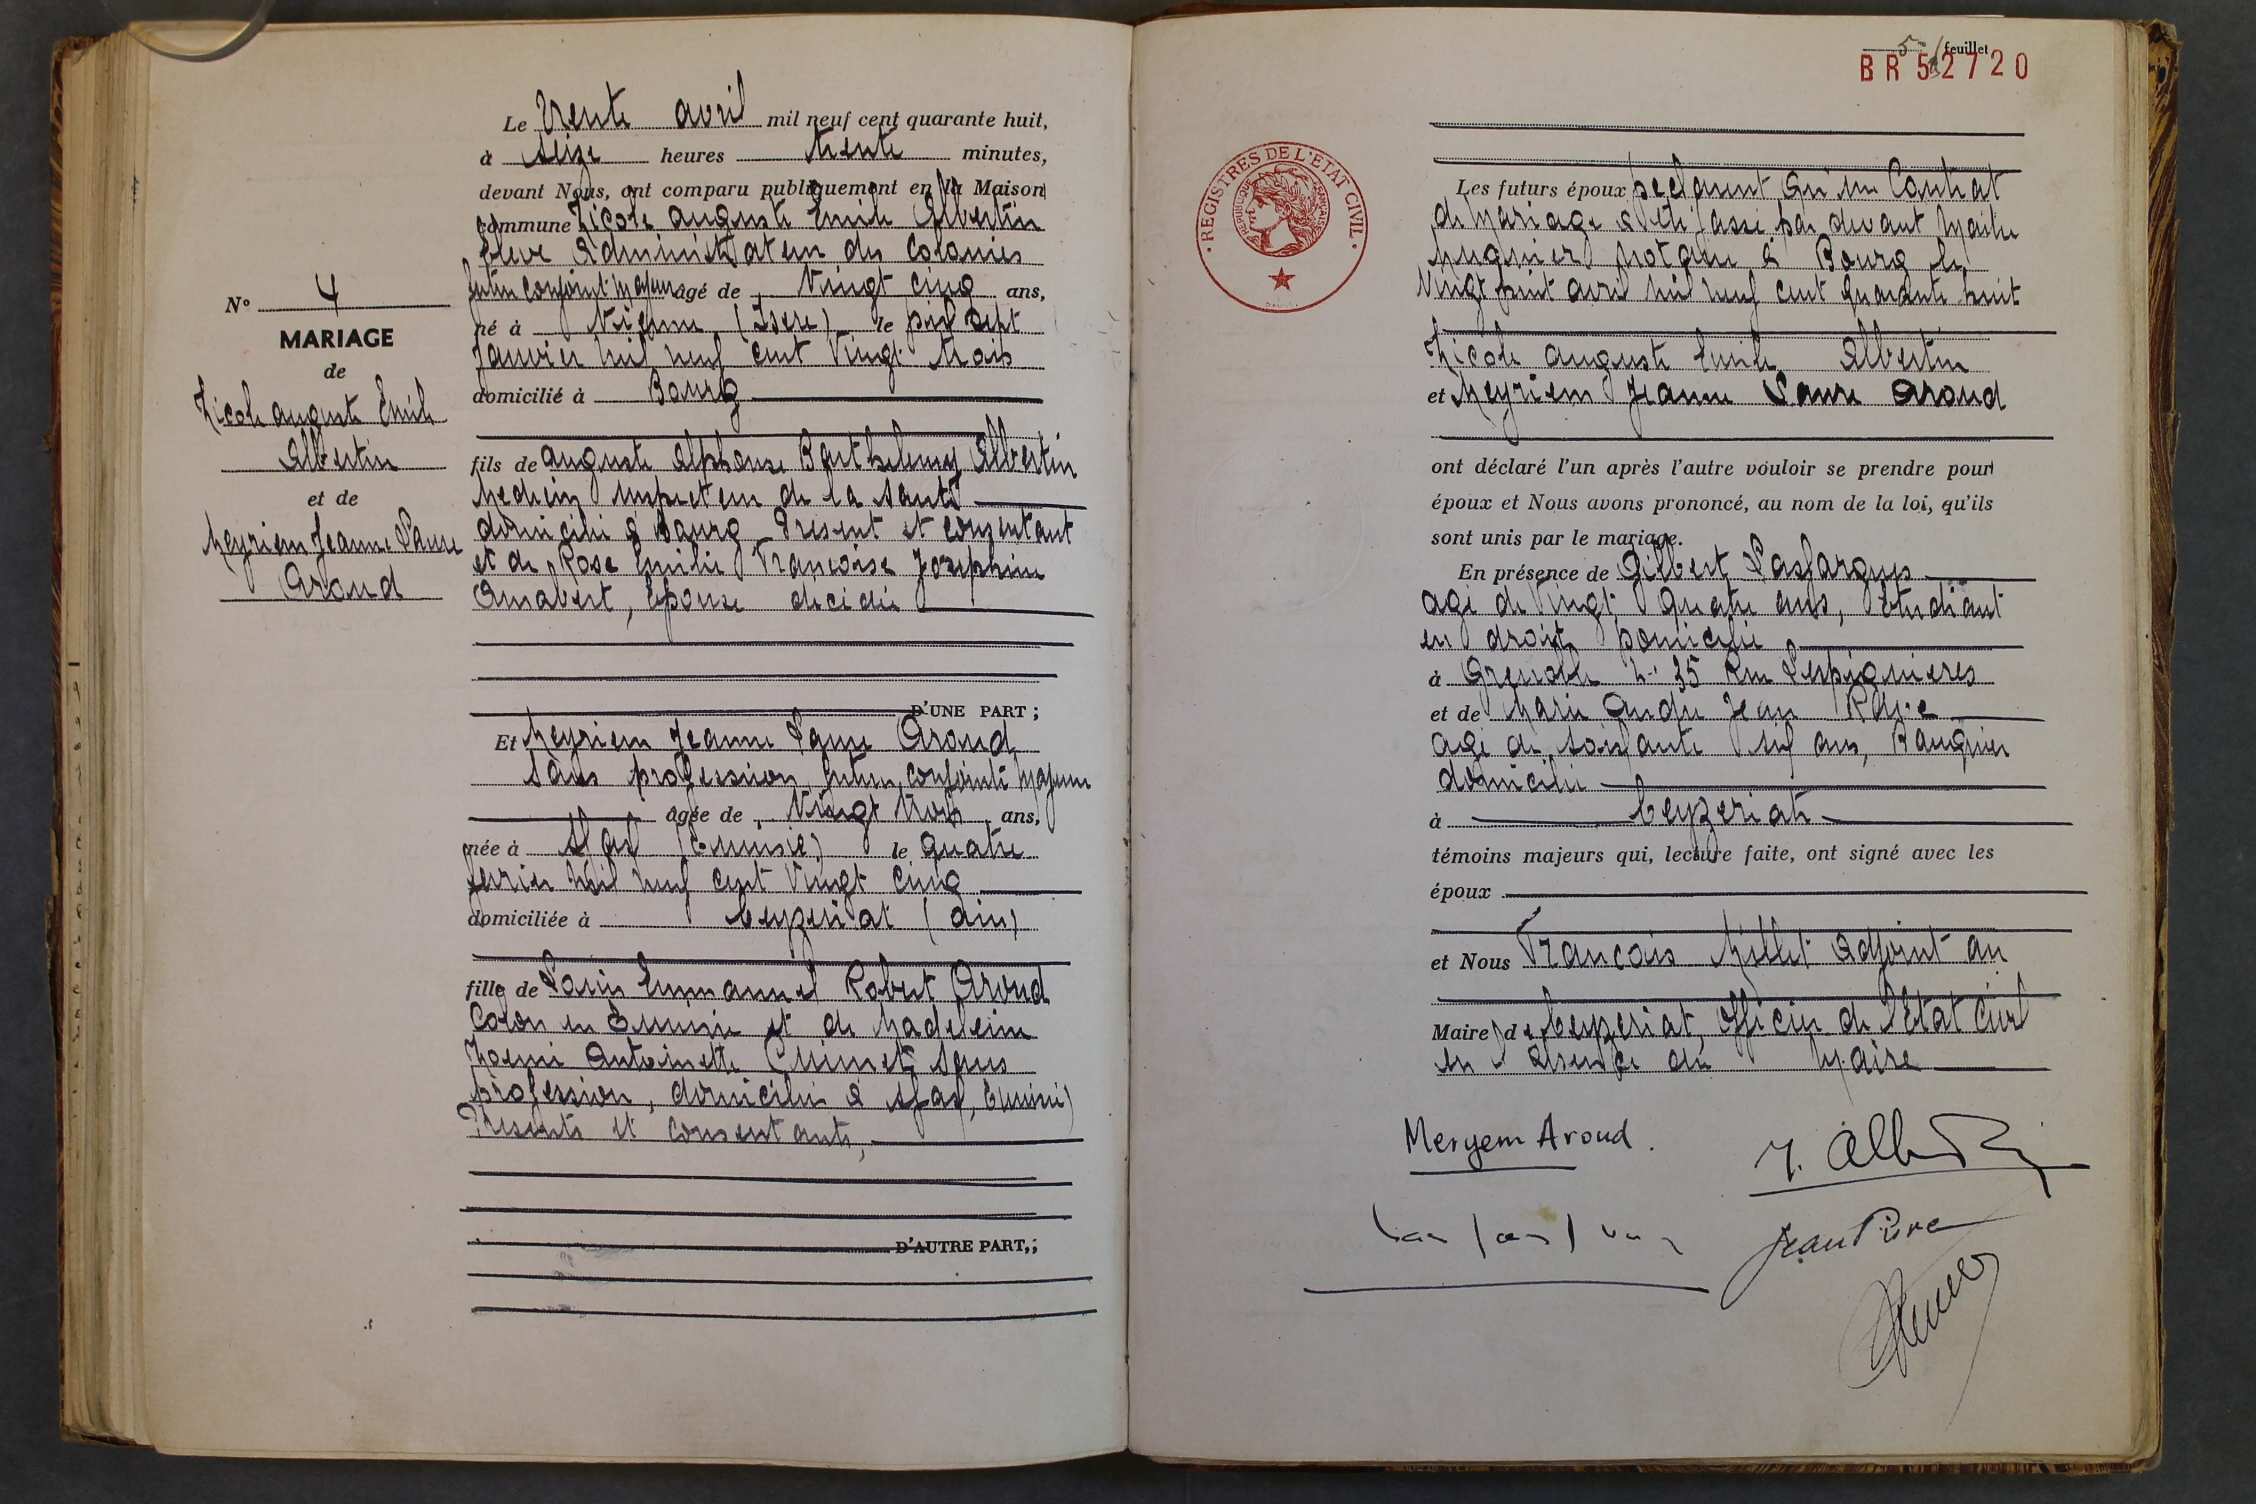 Le Trente avril mil neuf cent quarante huit,
à seize heures trente minutes,
devant Nous, ont comparu publiquement en la Maison
commune Nicole Auguste Emile Albertin
Eleve Administrateur des Colonies
futur conjoint majeur âgé de Vingt cinq ans,
né à Vienne (Isere) le dix sept
Janvier mil neuf cent Vingt trois
domicilié à Bourg
N° 4
MARIAGE
de
Nicole Auguste Emile
Albertin
et de
Meyriem Jeanne Laure
Aroud
fils de Auguste Alphonse Barthelemy Albertin
Medecin Inspecteur de la Santé
domicilié à Bourg Present et consentant
et de Rose Emilie Francoise Josephine
Amabert, Epouse decedée
D'UNE PART ;
Et Meyriem Jeanne Laure Aroud
sans profession, future conjointe majeure
âgée de Vingt trois ans,
née à Sfax (Tunisie) le quatre
fevrier mil neuf cent Vingt cinq
domiciliée à Ceyzeriat (Ain)
fille de Louis Emmanuel Robert Aroud
Colon en Tunisie et de Madeleine
Noemi Antoinette Cuinet sans
profession, domiciliés à Sfax, Tunisie)
Presents et consentants,
D'AUTRE PART,;
5 feuillet
BR 52720
REGISTRES DE L'ETAT CIVIL
REPUBLIQUE FRANÇAISE
Les futurs époux declarent qu'un Contrat
de Mariage a été passé par devant Maitre
Mugnier Notaire à Bourg le
Vingt huit avril mil neuf cent quarante huit
Nicole Auguste Emile Albertin
et Meyriem Jeanne Laure Aroud
ont déclaré l'un après l'autre vouloir se prendre pour
époux et Nous avons prononcé, au nom de la loi, qu'ils
sont unis par le mariage.
En présence de Gilbert Lasfargues
agé de Vingt quatre ans, Etudiant
en droit domicilié
à Grenoble N° 35 Rue Lesdiguieres
et de Marie André Jean
agé de soixante ans, Banquier
domicilié
à Ceyzeriat
témoins majeurs qui, lecture faite, ont signé avec les
époux
et Nous Francois Millet Adjoint au
Maire de Ceyzeriat, Officier de l'Etat Civil
en l'absence du Maire
Meryem Aroud.
N. Albertin
Jean